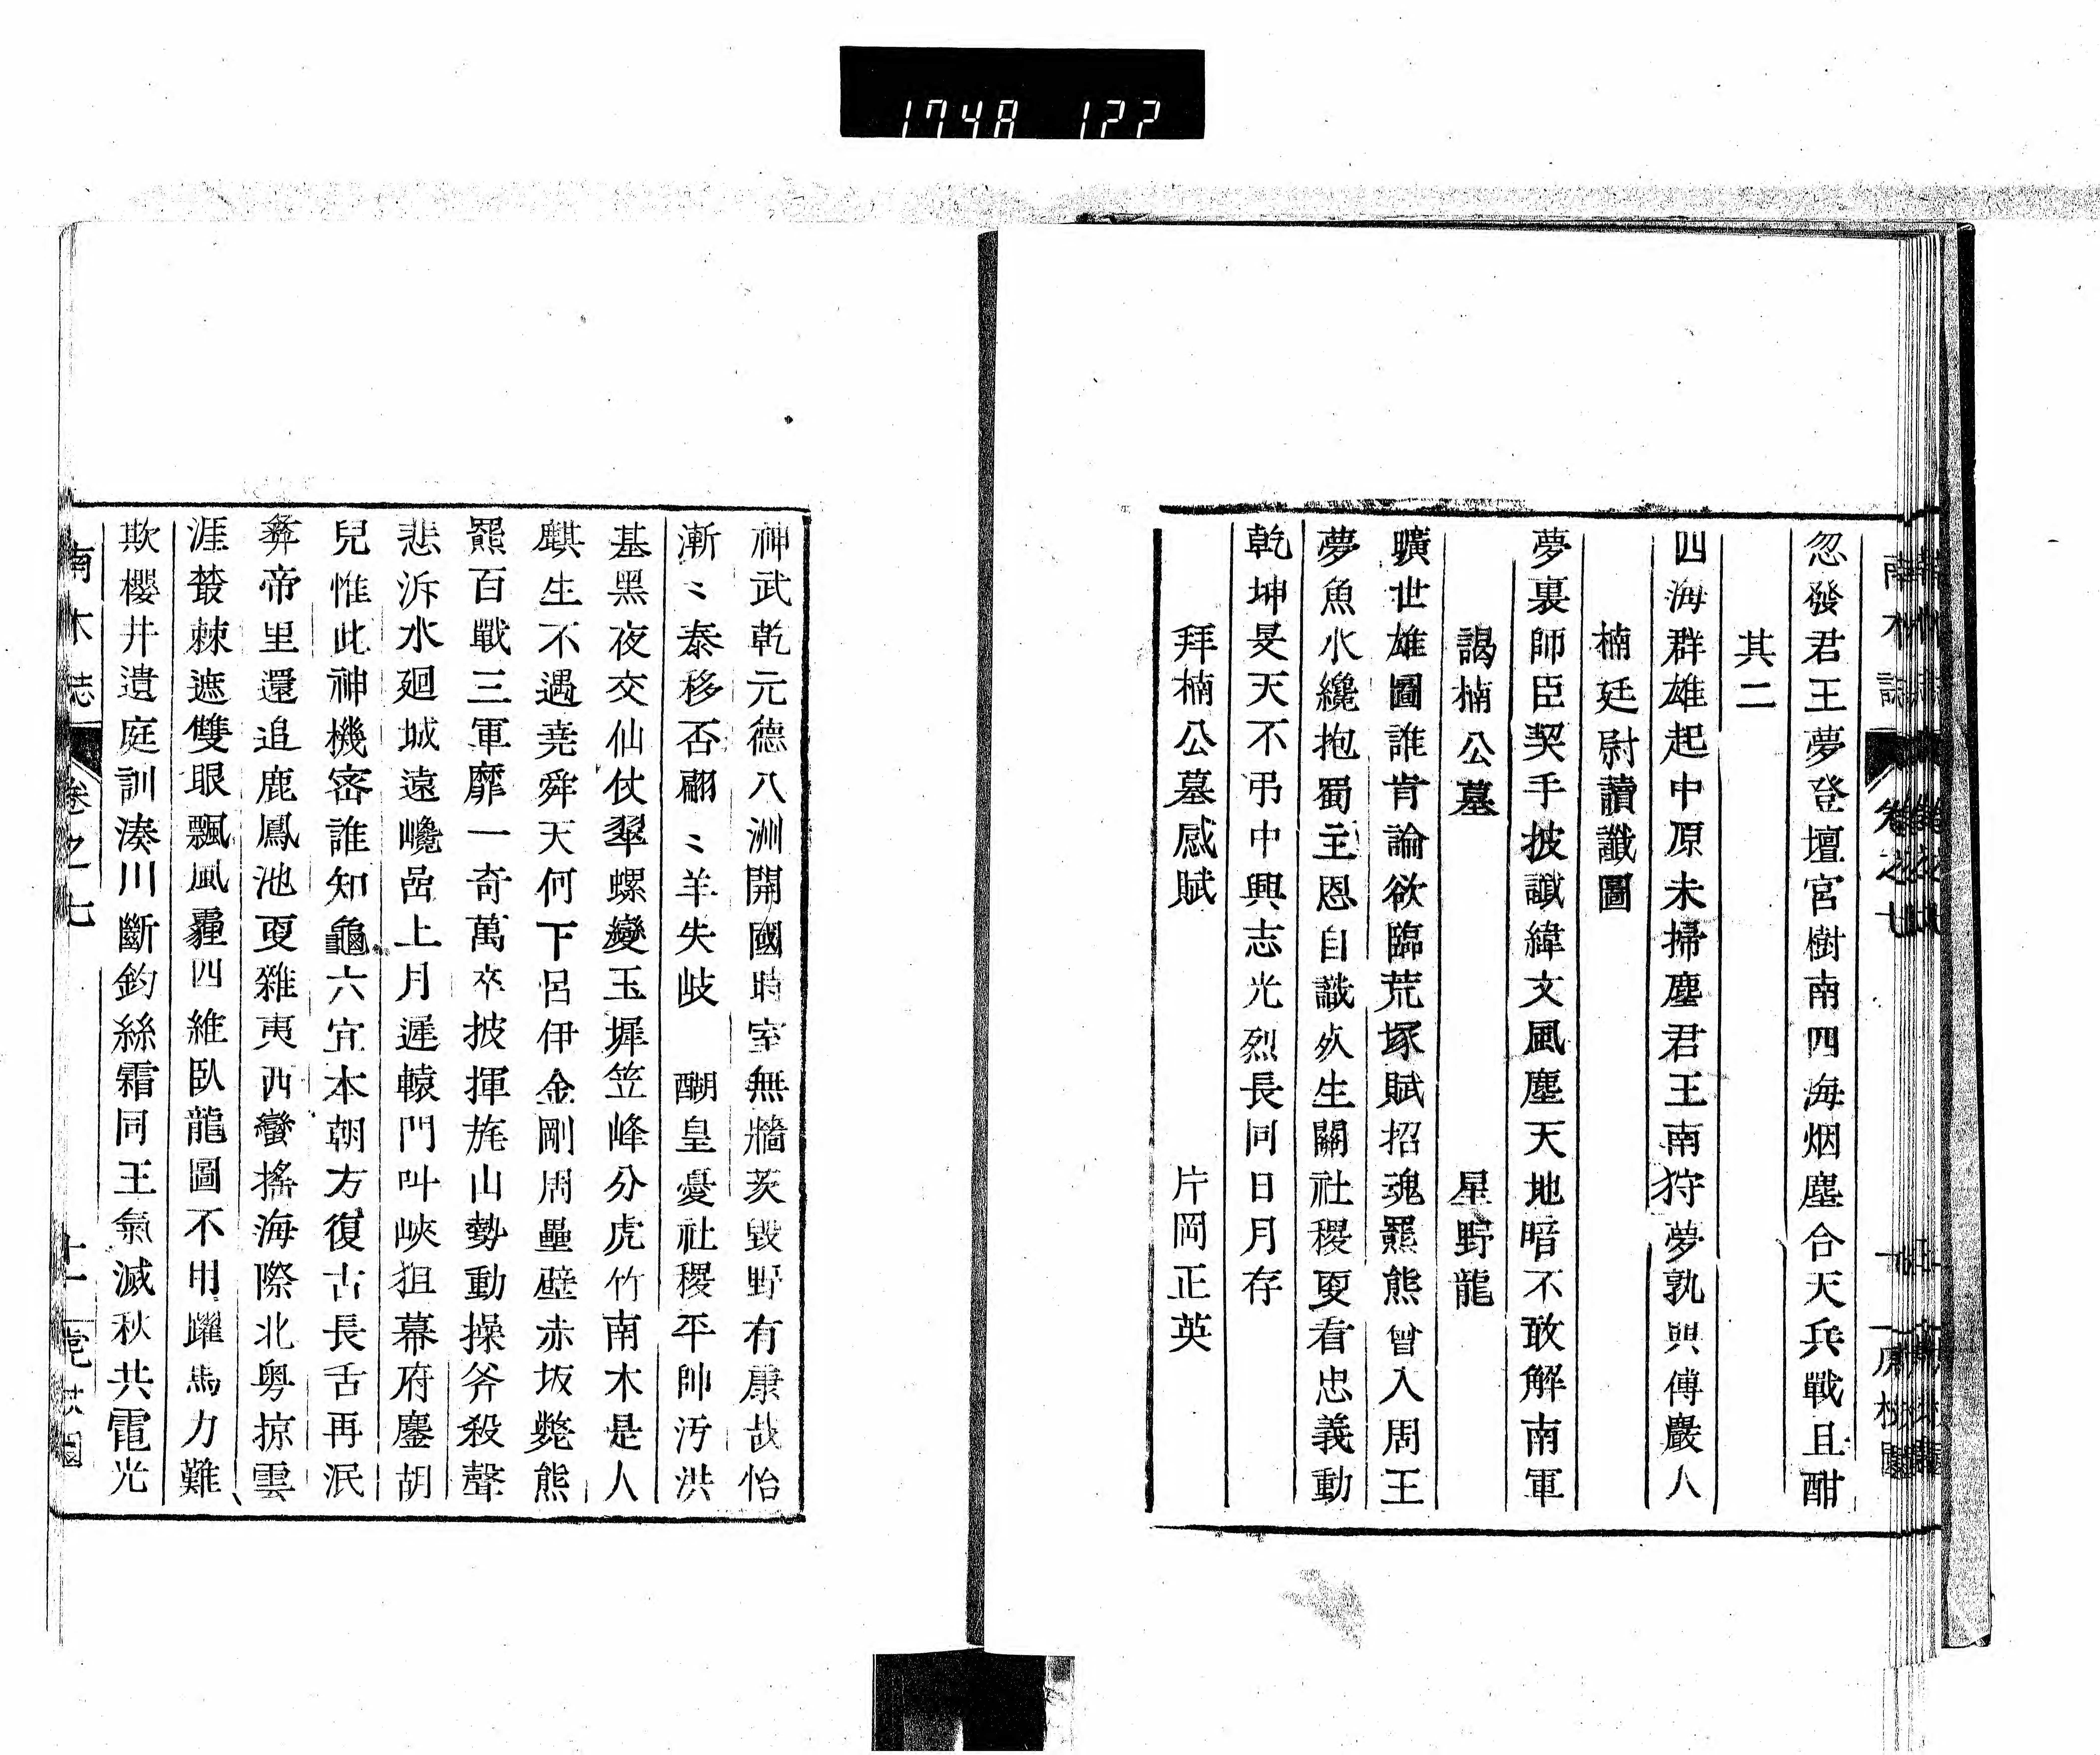 1748 122
忽發君王夢登壇宮樹南四海烟塵合天兵戰且酣
其二
四海群雄起中原未掃塵君王南狩夢孰與傅巖人
楠廷尉讀讖圖
夢裏師臣契手披讖緯文風塵天地暗不敢解南軍
謁楠公墓 星野龍
曠世雄圖誰肯論欲臨荒塚賦招魂羆熊曾入周王
夢魚水纔抱蜀主恩自識歿生關社稷更看忠義動
乾坤旻天不弔中興志光烈長同日月存
拜楠公墓感賦 片岡正英
神武乾元德八洲開國時室無牆茨毀野有康哉怡
漸〻泰移否翩〻羊失岐 醐皇憂社稷平帥汚洪
基黑夜交仙仗翠螺變玉墀笠峰分虎竹南木是人
麒生不遇堯舜天何下呂伊金剛周壘壁赤坂斃熊
羆百戰三軍靡一奇萬卒披揮旄山勢動操斧殺聲
悲泝水廻城遠巉嵒上月遲轅門叫峽狙幕府鏖胡
兒惟此神機密誰知龜六宜本朝方復古長舌再泯
彜帝里還追鹿鳳池更雜夷西蠻搖海際北粵掠雲
涯藂棘遮雙眼飄風霾四維臥龍圖不用躍馬力難
欺櫻井遺庭訓湊川斷鈞絲霜同王氣滅秋共電光
南木誌 卷之七 十一